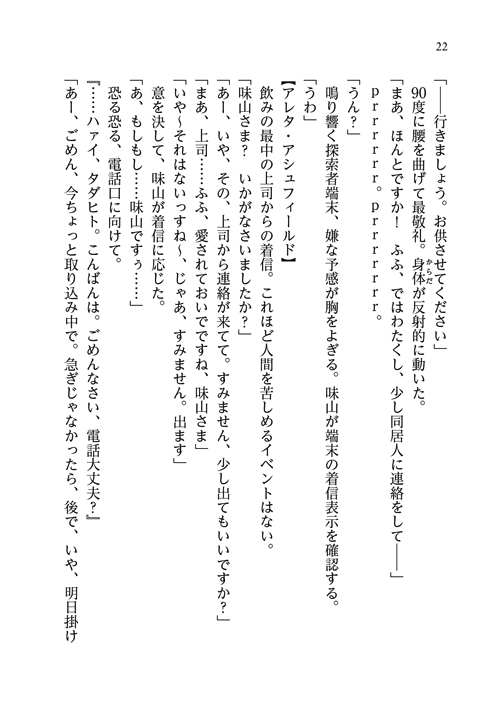 22
「――行きましょう。お供させてください」
90度に腰を曲げて最敬礼。身体が反射的に動いた。
からだ
「まあ、ほんとですか！　ふふ、ではわたくし、少し同居人に連絡をして――」
ｐｒｒｒｒｒｒ。ｐｒｒｒｒｒｒｒ。
「うん？」
鳴り響く探索者端末、嫌な予感が胸をよぎる。味山が端末の着信表示を確認する。
「うわ」
【アレタ・アシュフィールド】
飲みの最中の上司からの着信。これほど人間を苦しめるイベントはない。
「味山さま？　いかがなさいましたか？」
「あー、いや、その、上司から連絡が来てて。すみません、少し出てもいいですか？」
「まあ、上司……ふふ、愛されておいでですね、味山さま」
「いや～それはないっすね～、じゃあ、すみません。出ます」
意を決して、味山が着信に応じた。
「あ、もしもし……味山ですぅ……」
恐る恐る、電話口に向けて。
『……ハァイ、タダヒト。こんばんは。ごめんなさい、電話大丈夫？』
「あー、ごめん、今ちょっと取り込み中で。急ぎじゃなかったら、後で、いや、明日掛け